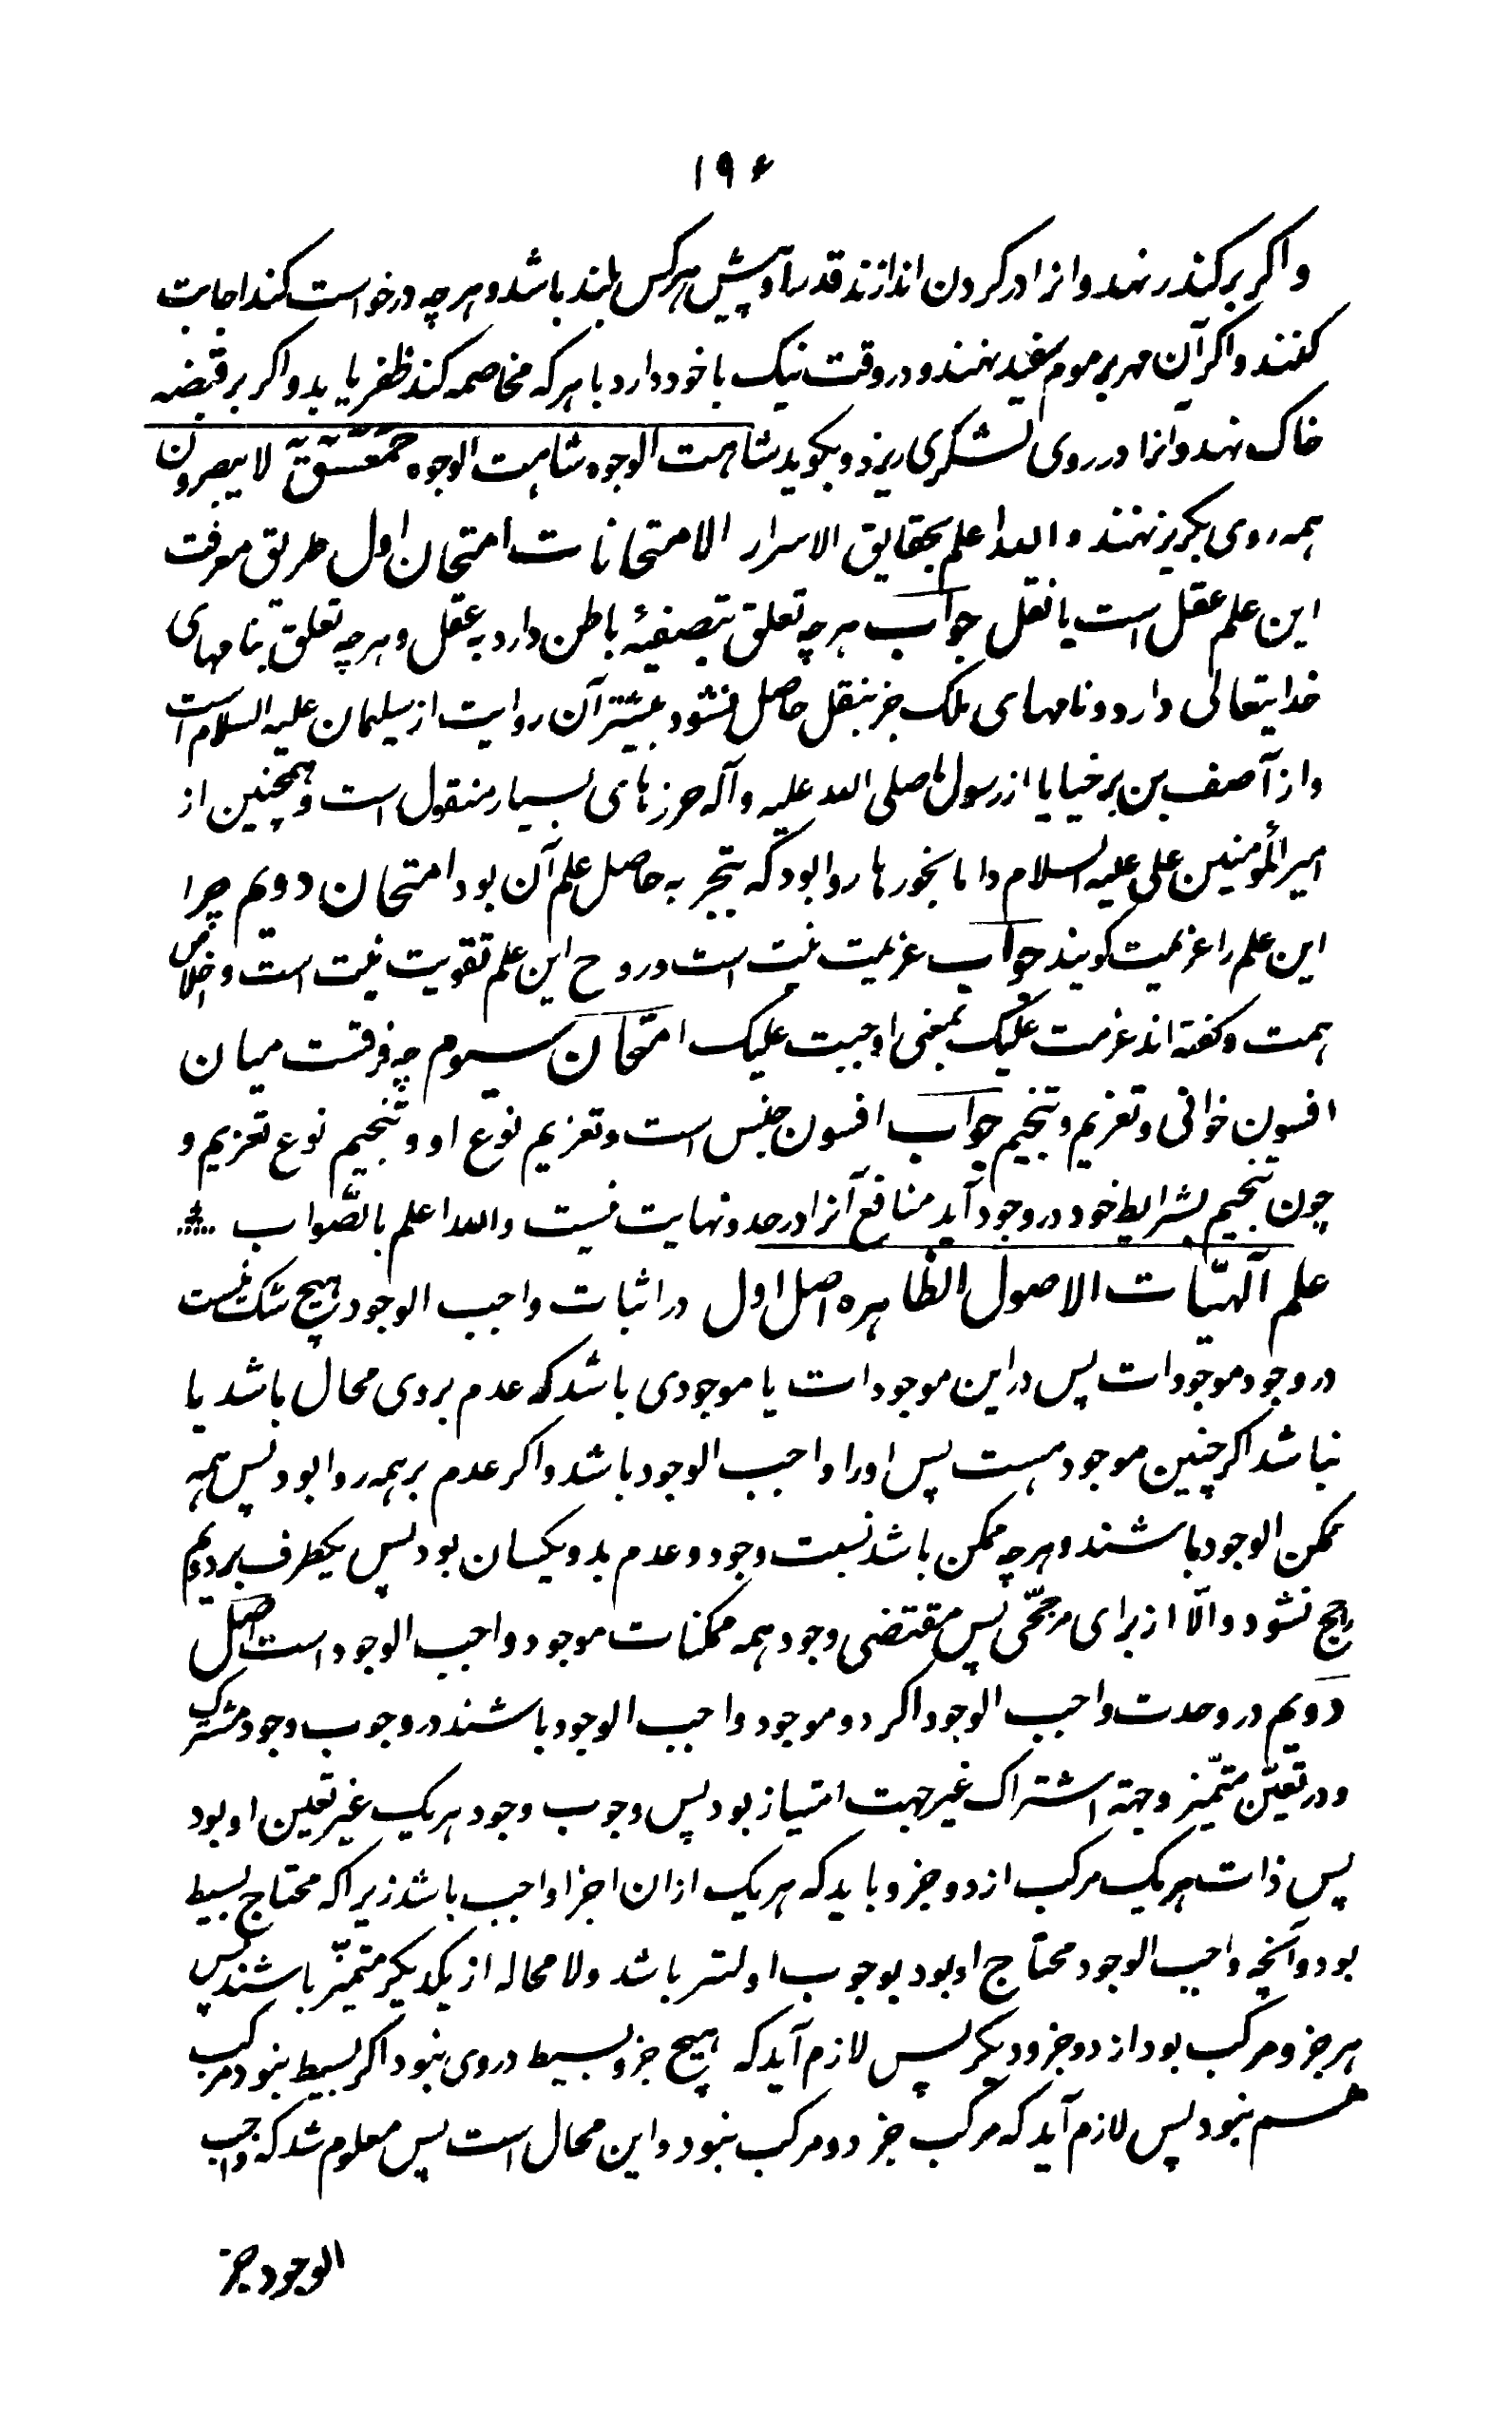 ۱۹۶
واکر بر کندر نهند و انرا در کردن اندازند قدر او پیش هرکس بلند باشد و هرچه درخواست کند اجابت
کنند و اکر آن مهر بر موم سفید نهند و در وقت نیک با خود دارد با هر که مخاصمه کند ظفر یابد و اکر بر قبضه
خاک نهد و آنرا در روی لشکری ریزد و بکوید شاهت الوجوه شاهت الوجوه حمعسق لا یبصرون
همه روی بکریز نهند و الله اعلم بحقایق الاسرار الامتحانات امتحان اول طریق معرفت
این علم عقل است یا نقل جواب هر چه تعلق بتصفیهٔ باطن دارد به عقل و هرچه تعلق بنامهای
خدایتعالی دارد و نامهای ملک جز بنقل حاصل نشود بیشتر آن روایت از سلیمان علیه السلام است
و از آصف بن برخیا یا از رسول ما صلی الله علیه و آله حرزهای بسیار منقول است و همچنین از
امیرالمؤمنین علی علیه السلام و اما بخورها روا بود که بتجربه حاصل علم آن بود امتحان دویم چرا
این علم را عزیمت کویند جواب عزیمت نیت است و روح این علم تقویت نیت است و اخلاص
همت و کفته اند عزمت علیک بمعنی اوجبت علیک امتحان سیوم چه فرقست میان
افسون خوانی و تعزیم و تنجیم جواب افسون جنس است و تعزیم نوع او و تنجیم نوع تعزیم و
چون تنجیم بشرایط خود در وجود آید منافع آنرا در حد و نهایت نیست والله اعلم بالصّواب
علم آلهیّات الاصول الظاهره اصل اول در اثبات واجب الوجود هیچ شک نیست
در وجود موجودات پس در این موجودات یا موجودی باشد که عدم بروی محال باشد یا
نباشد اکر چنین موجود هست پس اورا واجب الوجود باشد و اکر عدم بر همه روا بود پس همه
ممکن الوجود باشند و هرچه ممکن باشد نسبت وجود و عدم بدو یکسان بود پس یکطرف بر دویم
راجح نشود والّا از برای مرجّحی پس مقتضی وجود همه ممکنات موجود واجب الوجود است اصل
دویم در وحدت واجب الوجود اکر دو موجود واجب الوجود باشند در وجوب وجود مشترک
و در تعیّن متمّیز و جهة اشتراک غیر جهت امتیاز بود پس وجوب وجود هر یک غیر تعین او بود
پس ذات هر یک مرکب از دو جزو باید که هر یک ازان اجزا واجب باشد زیرا که محتاج بسیط
بود و آنچه واجب الوجود محتاج او بود بوجوب اولتر باشد و لامحاله از یکدیکر متمیّز باشند پس
هر جزو مرکب بود از دو جزو دیکر پس لازم آید که هیچ جزو بسیط در وی نبود اکر بسیط نبود مرکب
هم نبود پس لازم آید که مرکب جزو و مرکب نبود و این محال است پس معلوم شد که واجب
الوجود جز